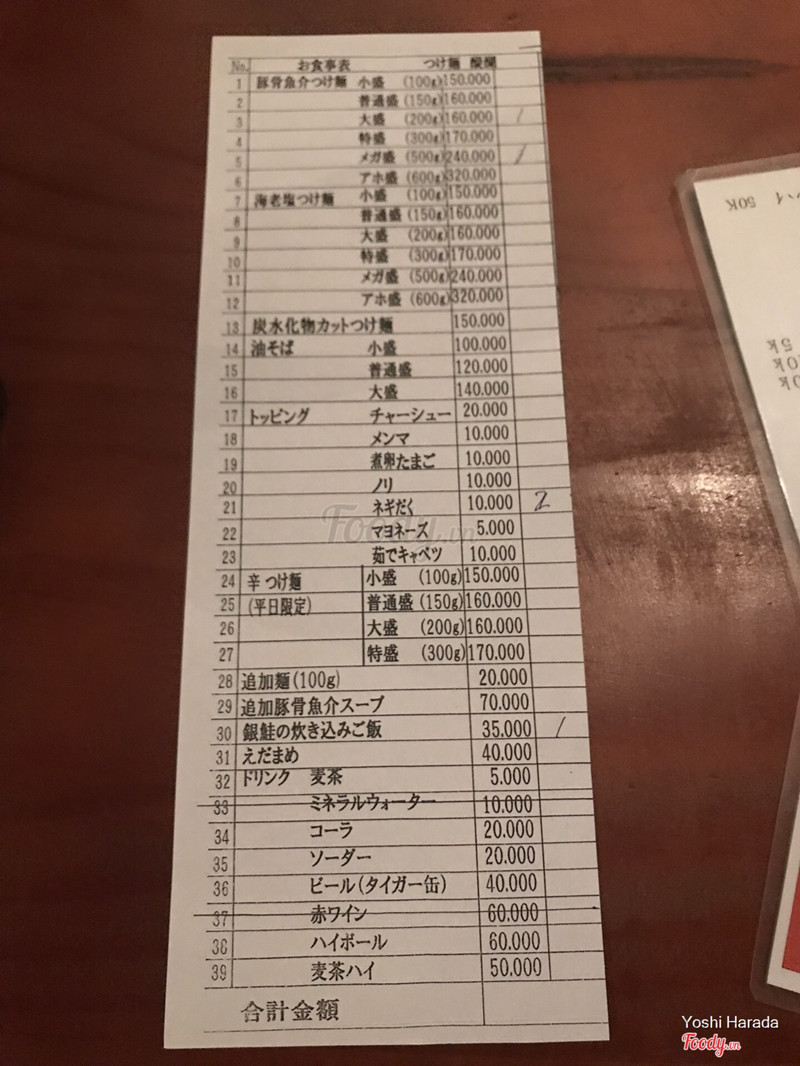 No. お食事表 つけ麺 醍醐
1 豚骨魚介つけ麺 小盛 (100g) 150.000
2 普通盛 (150g) 160.000
3 大盛 (200g) 160.000 /
4 特盛 (300g) 170.000
5 メガ盛 (500g) 240.000 /
6 アホ盛 (600g) 320.000
7 海老塩つけ麺 小盛 (100g) 150.000
8 普通盛 (150g) 160.000
9 大盛 (200g) 160.000
10 特盛 (300g) 170.000
11 メガ盛 (500g) 240.000
12 アホ盛 (600g) 320.000
13 炭水化物カットつけ麺 150.000
14 油そば 小盛 100.000
15 普通盛 120.000
16 大盛 140.000
17 トッピング チャーシュー 20.000
18 メンマ 10.000
19 煮卵たまご 10.000
20 ノリ 10.000
21 ネギだく 10.000 2
22 マヨネーズ 5.000
23 茹でキャベツ 10.000
24 辛つけ麺 小盛 (100g) 150.000
25 (平日限定) 普通盛 (150g) 160.000
26 大盛 (200g) 160.000
27 特盛 (300g) 170.000
28 追加麺(100g) 20.000
29 追加豚骨魚介スープ 70.000
30 銀鮭の炊き込みご飯 35.000 /
31 えだまめ 40.000
32 ドリンク 麦茶 5.000
33 ミネラルウォーター 10.000
34 コーラ 20.000
35 ソーダー 20.000
36 ビール(タイガー缶) 40.000
37 赤ワイン 60.000
38 ハイボール 60.000
39 麦茶ハイ 50.000
合計金額
50K
5K
Foody.vn
Yoshi Harada
Foody.vn